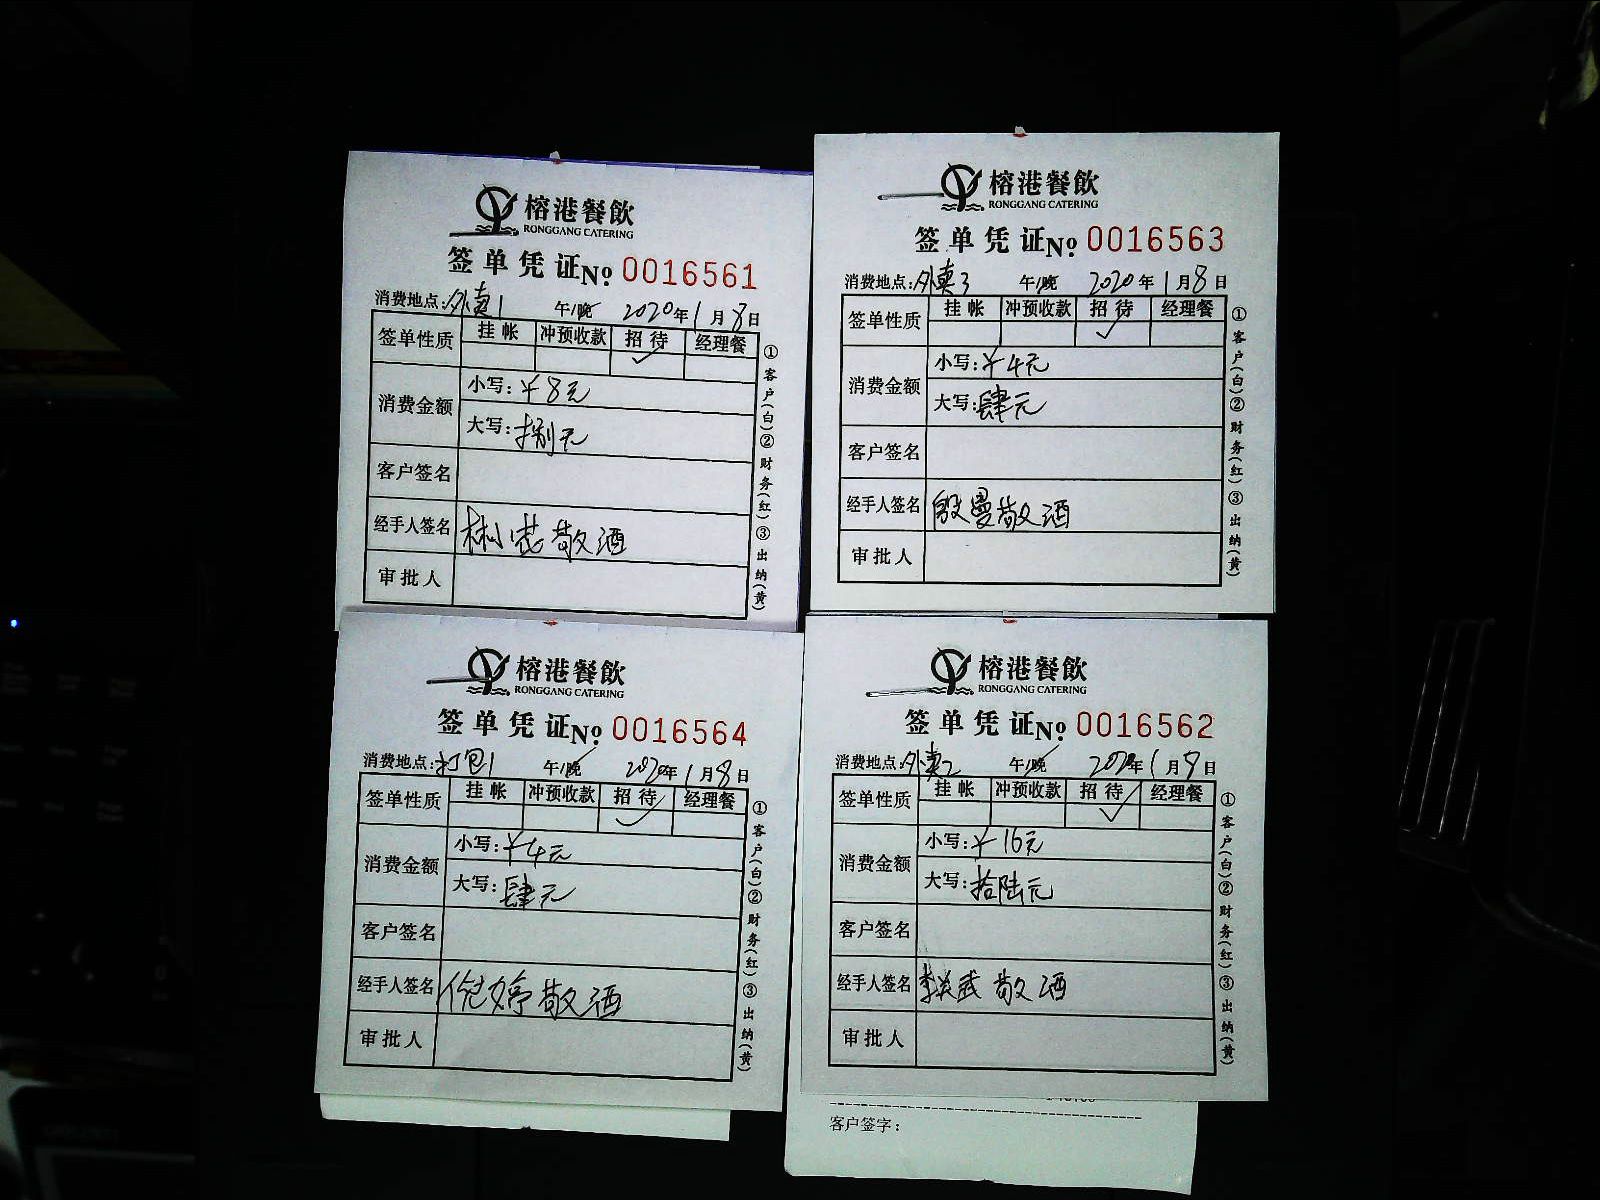 榕港餐飲
RONGGANG CATERING
签单凭证№ 0016561
消费地点:外卖1 午/晚 2020年1月8日
签单性质 挂帐 冲预收款 招待 经理餐
✓
消费金额 小写:¥8元
大写:捌元
客户签名
经手人签名 敬酒
审批人
①客户(白)②财务(红)③出纳(黄)
榕港餐飲
RONGGANG CATERING
签单凭证№ 0016563
消费地点:外卖3 午/晚 2020年1月8日
签单性质 挂帐 冲预收款 招待 经理餐
✓
消费金额 小写:¥4元
大写:肆元
客户签名
经手人签名 殷曼敬酒
审批人
①客户(白)②财务(红)③出纳(黄)
榕港餐飲
RONGGANG CATERING
签单凭证№ 0016564
消费地点:打包1 午/晚 2020年1月8日
签单性质 挂帐 冲预收款 招待 经理餐
✓
消费金额 小写:¥4元
大写:肆元
客户签名
经手人签名 倪婷敬酒
审批人
①客户(白)②财务(红)③出纳(黄)
榕港餐飲
RONGGANG CATERING
签单凭证№ 0016562
消费地点:外卖2 午/晚 2020年1月8日
签单性质 挂帐 冲预收款 招待 经理餐
✓
消费金额 小写:¥16元
大写:拾陆元
客户签名
经手人签名 李 武敬酒
审批人
①客户(白)②财务(红)③出纳(黄)
客户签字: